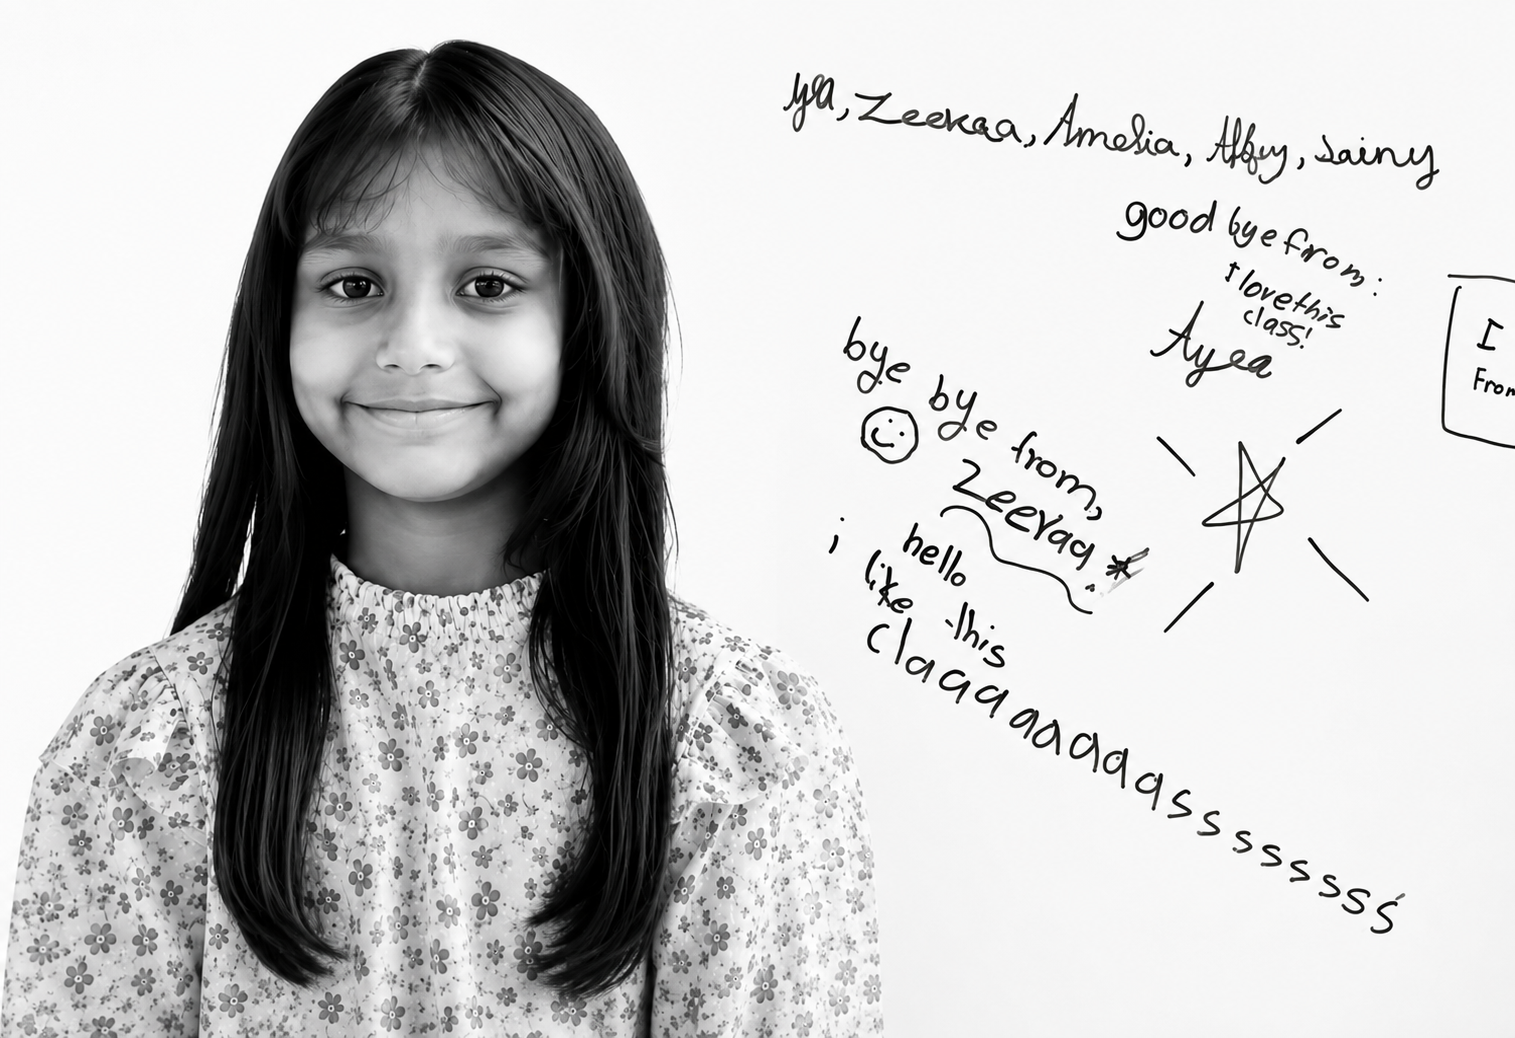 Zeekaa, Amelia, Abby, Sainy
good bye from:
I love this
class!
Ayea
I
From
bye bye from,
Zeeraa
hello
i like this
claaaaaaaassssssss